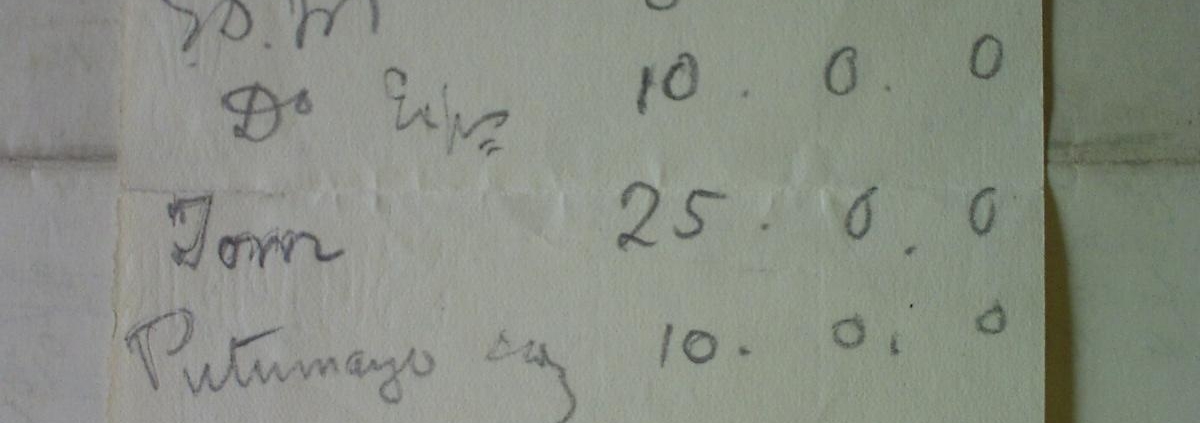 Do Exps 10 . 0 . 0
Tom 25 . 0 . 0
Putumayo 10 . 0 . 0